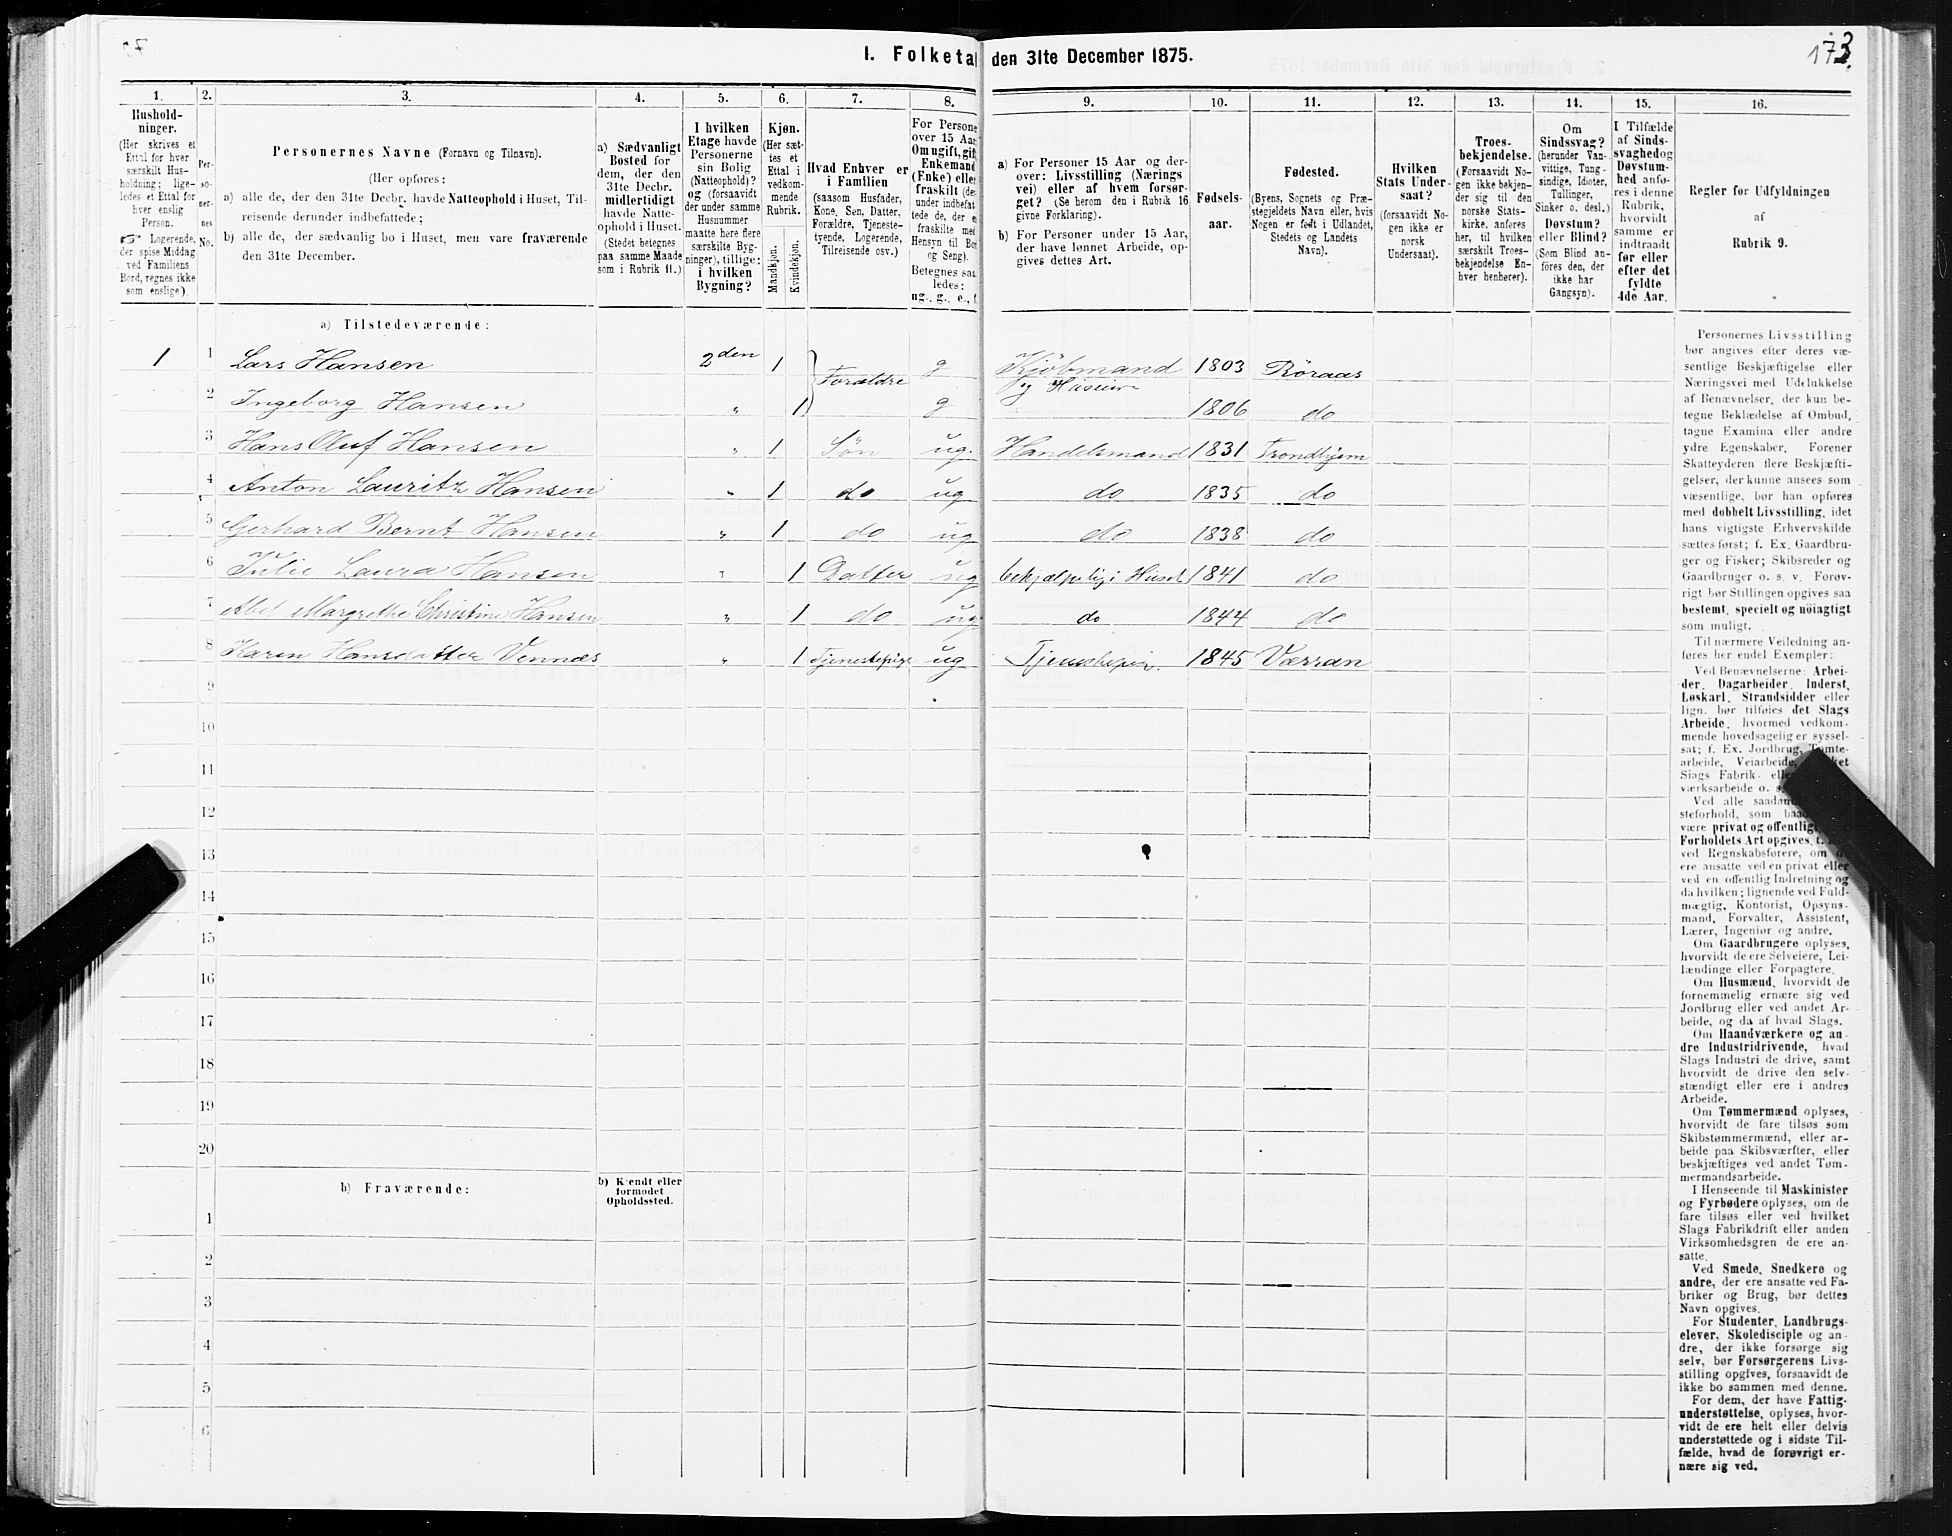 173.
I. Folketal den 31te December 1875.
1. 2. 3. 4. 5. 6. 7. 8. 9. 10. 11. 12. 13. 14. 15. 16.
Hushold-
ninger.
(Her skrives et
Ettal for hver
særskilt Hus-
holdning; lige-
ledes et Ettal for
hver enslig
Person.
☞ Logerende,
der spise Middag
ved Familiens
Bord, regnes ikke
som enslige).
Per-
so-
ner-
nes
No.
Personernes Navne (Fornavn og Tilnavn).
(Her opføres:
a) alle de, der den 31te Decbr. havde Natteophold i Huset, Til-
reisende derunder indbefattede;
b) alle de, der sædvanlig bo i Huset, men vare fraværende
den 31te December.
a) Sædvanligt
Bosted for
dem, der den
31te Decbr.
midlertidigt
havde Natte-
ophold i Huset.
(Stedet betegnes
paa samme Maade
som i Rubrik 11.)
I hvilken
Etage havde
Personerne
sin Bolig
(Natteophold)?
og (forsaavidt
der under samme
Husnummer
maatte here flere
særskilte Byg-
ninger), tillige:
i hvilken
Bygning?
Kjøn.
(Her sæt-
tes et
Ettal i
vedkom-
mende
Rubrik.
Mandkjøn.
Kvindekjøn.
Hvad Enhver er
i Familien
(saasom Husfader,
Kone, Søn, Datter,
Forældre, Tjeneste-
tyende, Logerende,
Tilreisende osv.)
For Persone
over 15 Aar
Om ugift, gift
Enkemand
(Enke) elle
fraskilt (de
under indbefat
tede de, der e
fraskilte med
Hensyn til Bo
og Seng).
Betegnes saa
ledes:
ug., g., e., f
a) For Personer 15 Aar og der-
over: Livsstilling (Nærings
vei) eller af hvem forsør-
get? (Se herom den i Rubrik 16
givne Forklaring).
b) For Personer under 15 Aar,
der have lønnet Arbeide, op-
gives dettes Art.
Fødsels-
aar.
Fødested.
(Byens, Sognets og Præ-
stegjeldets Navn eller, hvis
Nogen er født i Udlandet,
Stedets og Landets
Navn).
Hvilken
Stats Under-
saat?
(forsaavidt No-
gen ikke er
norsk
Undersaat).
Troes-
bekjendelse.
(Forsaavidt No-
gen ikke bekjen-
der sig til den
norske Stats-
kirke, anføres
her, til hvilken
særskilt Troes-
bekjendelse En-
hver henhører).
Om
Sindssvag?
(herunder Van-
vittige, Tung-
sindige, Idioter,
Tullinger,
Sinker o. desl.)
Døvstum?
eller Blind?
(Som Blind an-
føres den, der
ikke har
Gangsyn).
I Tilfælde
af Sinds-
svaghedog
Døvstum-
hed anfø-
res i denne
Rubrik,
hvorvidt
samme er
indtraadt
før eller
efter det
fyldte
4de Aar.
Regler for Udfyldningen
af
Rubrik 9.
a) Tilstedeværende:
1 1 Lars Hansen 2den 1 Forældre g Kjöbmand 1803 Röraas
2 Ingeborg Hansen " 1 g 1806 do
3 Hans Oluf Hansen " 1 Søn ug. Handelsmand 1831 Trondhjem
4 Anton Lauritz Hansen " 1 do ug do 1835 do
5 Gerhard Bernt Hansen " 1 do ug do 1838 do
6 Julie Laura Hansen " 1 Datter ug behjælpelig i Huset 1841 do
7 Abel Margrethe Christine Hansen " 1 do ug do 1844 do
8 Karen Hansdatter Vennæs " 1 Tjenestepige ug Tjenestepige 1845 Værran
9
10
11
12
13
14
15
16
17
18
19
20
b) Fraværende:
b) Kjendt eller
formodet
Opholdssted.
1
2
3
4
5
6
Personernes Livsstilling
bør angives efter deres væ-
sentlige Beskjæftigelse eller
Næringsvei med Udelukkelse
af Benævnelser, der kun be-
tegne Beklædelse af Ombud,
tagne Examina eller andre
ydre Egenskaber. Forener
Skatteyderen flere Beskjæfti-
gelser, der kunne ansees som
væsentlige, bør han opføres
med dobbelt Livsstilling, idet
hans vigtigste Erhvervskilde
sættes først; f. Ex. Gaardbru-
ger og Fisker; Skibsreder og
Gaardbruger o. s. v. Forøv-
rigt bør Stillingen opgives saa
bestemt, specielt og nøiagtigt
som muligt.
Til nærmere Veiledning an-
føres her endel Exempler:
Ved Benævnelserne: Arbei-
der, Dagarbeider, Inderst,
Løskarl, Strandsidder eller
lign. bør tilføies det Slags
Arbeide, hvormed vedkom-
mende hovedsagelig er syssel-
sat; f. Ex. Jordbrug, Tømte-
arbeide, Veiarbeide,
Slags Fabrik- el
værksarbeide o. s.
Ved alle saadan
steforhold, som
være privat og offentlig,
Forholdets Art opgives,
ved Regnskabsførere, om
ere ansatte ved en privat eller
ved en offentlig Indretning og
da hvilken; lignende ved Fuld-
mægtig, Kontorist, Opsyns-
mand, Forvalter, Assistent,
Lærer, Ingeniør og andre.
Om Gaardbrugere oplyses,
hvorvidt de ere Selveiere, Lei-
lændinge eller Forpagtere.
Om Husmænd, hvorvidt de
fornemmelig ernære sig ved
Jordbrug eller ved andet Ar-
beide, og da af hvad Slags.
Om Haandværkere og an-
dre Industridrivende, hvad
Slags Industri de drive, samt
hvorvidt de drive den selv-
stændigt eller ere i andres
Arbeide.
Om Tømmermænd oplyses,
hvorvidt de fare tilsøs som
Skibstømmermænd, eller ar-
beide paa Skibsværfter, eller
beskjæftiges ved andet Tøm-
mermandsarbeide.
I Henseende til Maskinister
og Fyrbødere oplyses, om de
fare tilsøs eller ved hvilket
Slags Fabrikdrift eller anden
Virksomhedsgren de ere an-
satte.
Ved Smede, Snedkere og
andre, der ere ansatte ved Fa-
briker og Brug, bør dettes
Navn opgives.
For Studenter, Landbrugs-
elever, Skoledisciple og an-
dre, der ikke forsørge sig
selv, bør Forsørgerens Livs-
stilling opgives, forsaavidt de
ikke bo sammen med denne.
For dem, der have Fattig-
understøttelse, oplyses, hvor-
vidt de ere helt eller delvis
understøttede og i sidste Til-
fælde, hvad de forøvrigt er-
nære sig ved.